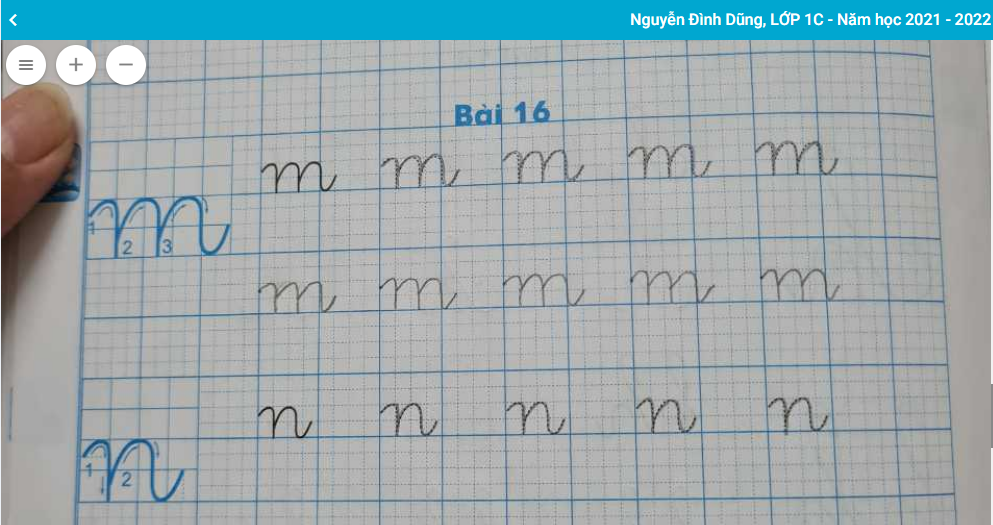 Nguyễn Đình Dũng, LỚP 1C - Năm học 2021 - 2022
Bài 16
m m m m m
m 1 2 3
m m m m m
n n n n n
n 1 2